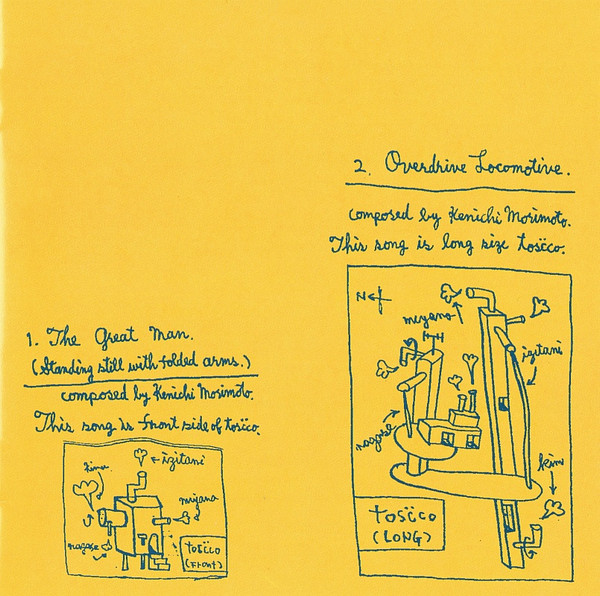 1. The Great Man.
(Standing still with folded arms.)
composed by Kenichi Morimoto.
This song is front side of tosïco.
kimu
izitani
miyano
nagase
tosïco
(Front)
2. Overdrive Locomotive.
composed by Kenichi Morimoto.
This song is long size tosïco.
N
miyano
izitani
nagase
kim
tosïco
(LONG)